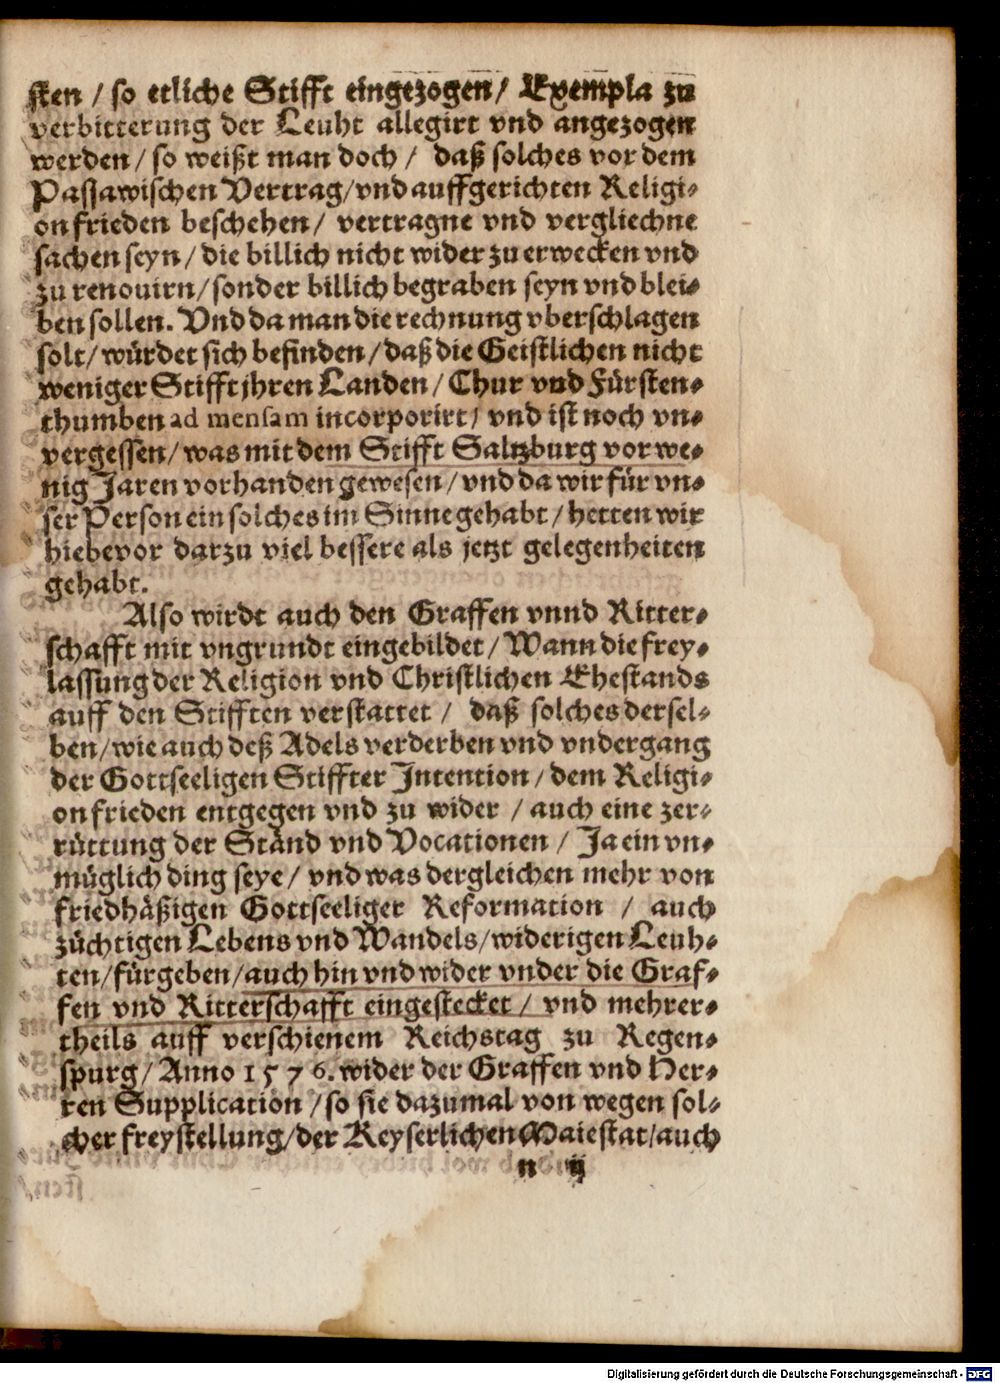 sten / so etliche Stifft eingezogen / Exempla zu
verbitterung der Leuht allegirt vnd angezogen
werden / so weißt man doch / daß solches vor dem
Passawischen Vertrag / vnd auffgerichten Religi-
on frieden beschehen / vertragne vnd vergliechne
sachen seyn / die billich nicht wider zu erwecken vnd
zu renouirn / sonder billich begraben seyn vnd blei-
ben sollen. Vnd da man die rechnung vberschlagen
solt / würdet sich befinden / daß die Geistlichen nicht
weniger Stifft jhren Landen / Chur vnd Fürsten-
thumben ad mensam incorporirt / vnd ist noch vn-
vergessen / was mit dem Stifft Saltzburg vor we-
nig Jaren vorhanden gewesen / vnd da wir für vn-
ser Person ein solches im Sinne gehabt / hetten wir
hiebevor darzu viel bessere als jetzt gelegenheiten
gehabt.
Also wirdt auch den Graffen vnnd Ritter-
schafft mit vngrundt eingebildet / Wann die frey-
lassung der Religion vnd Christlichen Ehestands
auff den Stifften verstattet / daß solches dersel-
ben / wie auch deß Adels verderben vnd vndergang
der Gottseeligen Stiffter Intention / dem Religi-
on frieden entgegen vnd zu wider / auch eine zer-
rüttung der Ständ vnd Vocationen / Ja ein vn-
müglich ding seye / vnd was dergleichen mehr von
friedhäßigen Gottseeliger Reformation / auch
züchtigen Lebens vnd Wandels / widerigen Leuh-
ten / fürgeben / auch hin vnd wider vnder die Graf-
fen vnd Ritterschafft eingestecket / vnd mehrer-
theils auff verschienem Reichstag zu Regen-
spurg / Anno 1576. wider der Graffen vnd Her-
ren Supplication / so sie dazumal von wegen sol-
cher freystellung / der Keyserlichen Maiestat / auch
n ij
Digitalisierung gefördert durch die Deutsche Forschungsgemeinschaft - DFG